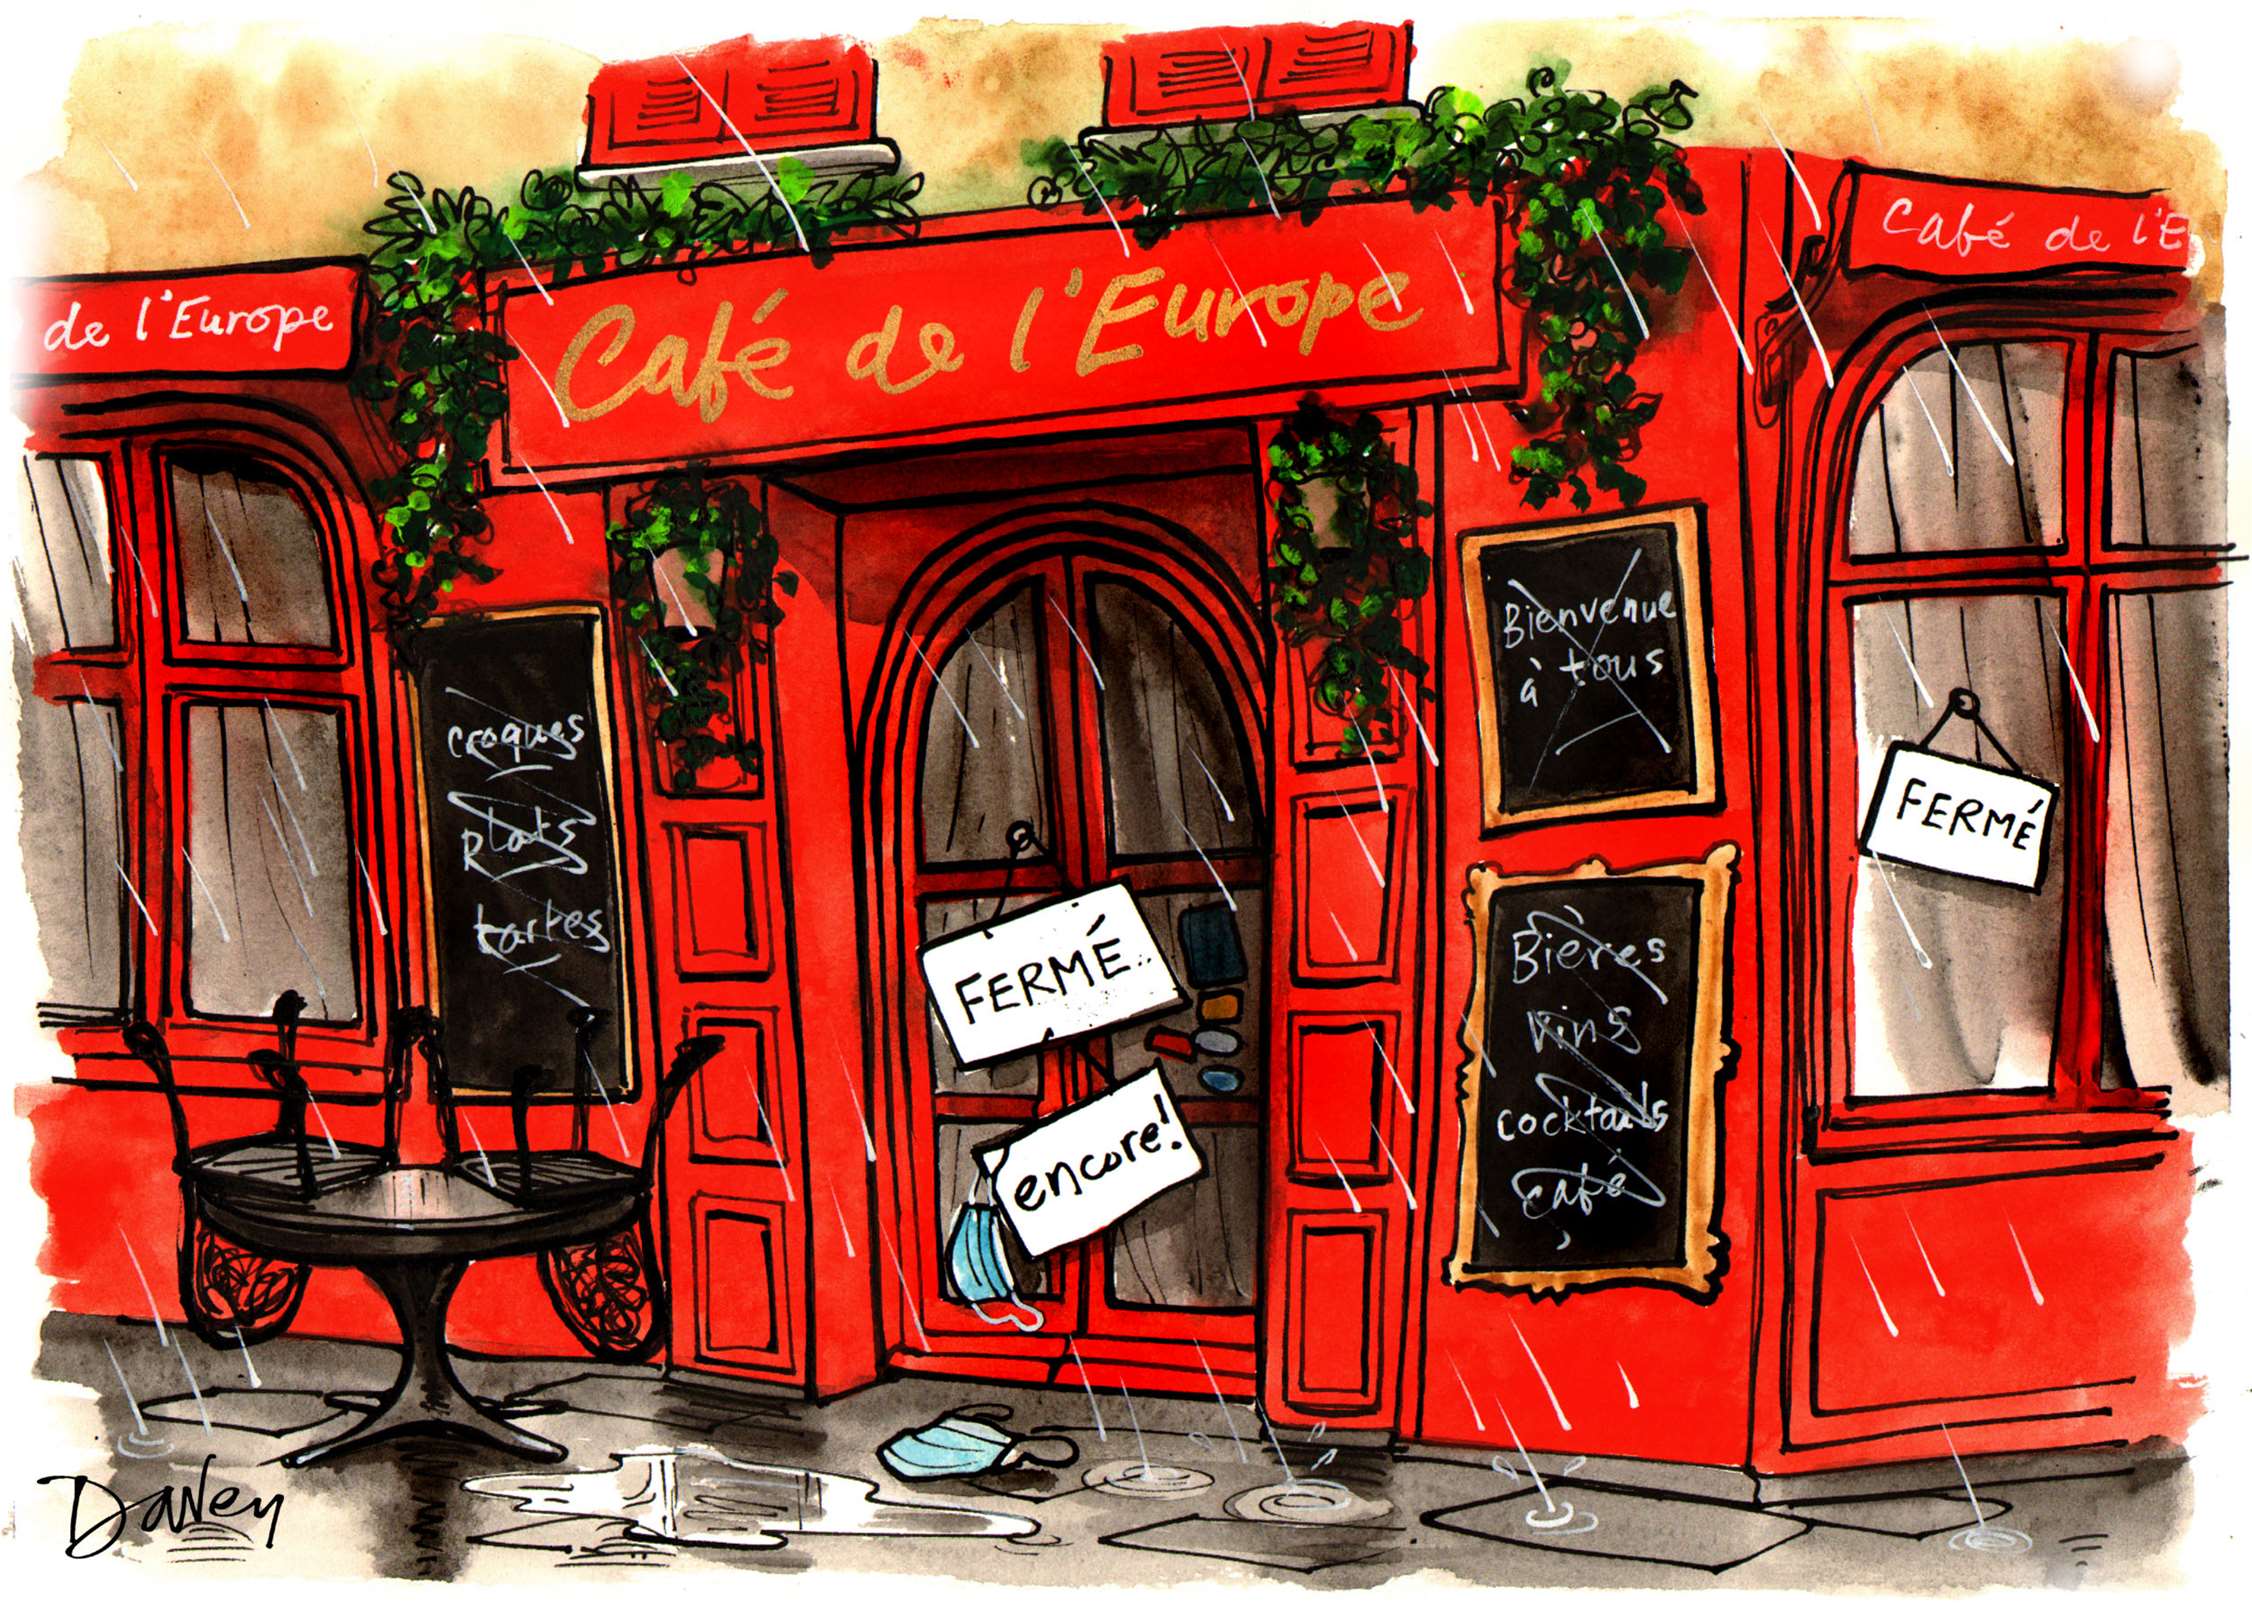 Café de l'Europe
de l'Europe
Café de l'E
croques
Plats
tartes
Bienvenue
à tous
Bières
vins
cocktails
café
FERMÉ
encore!
FERMÉ
Davey